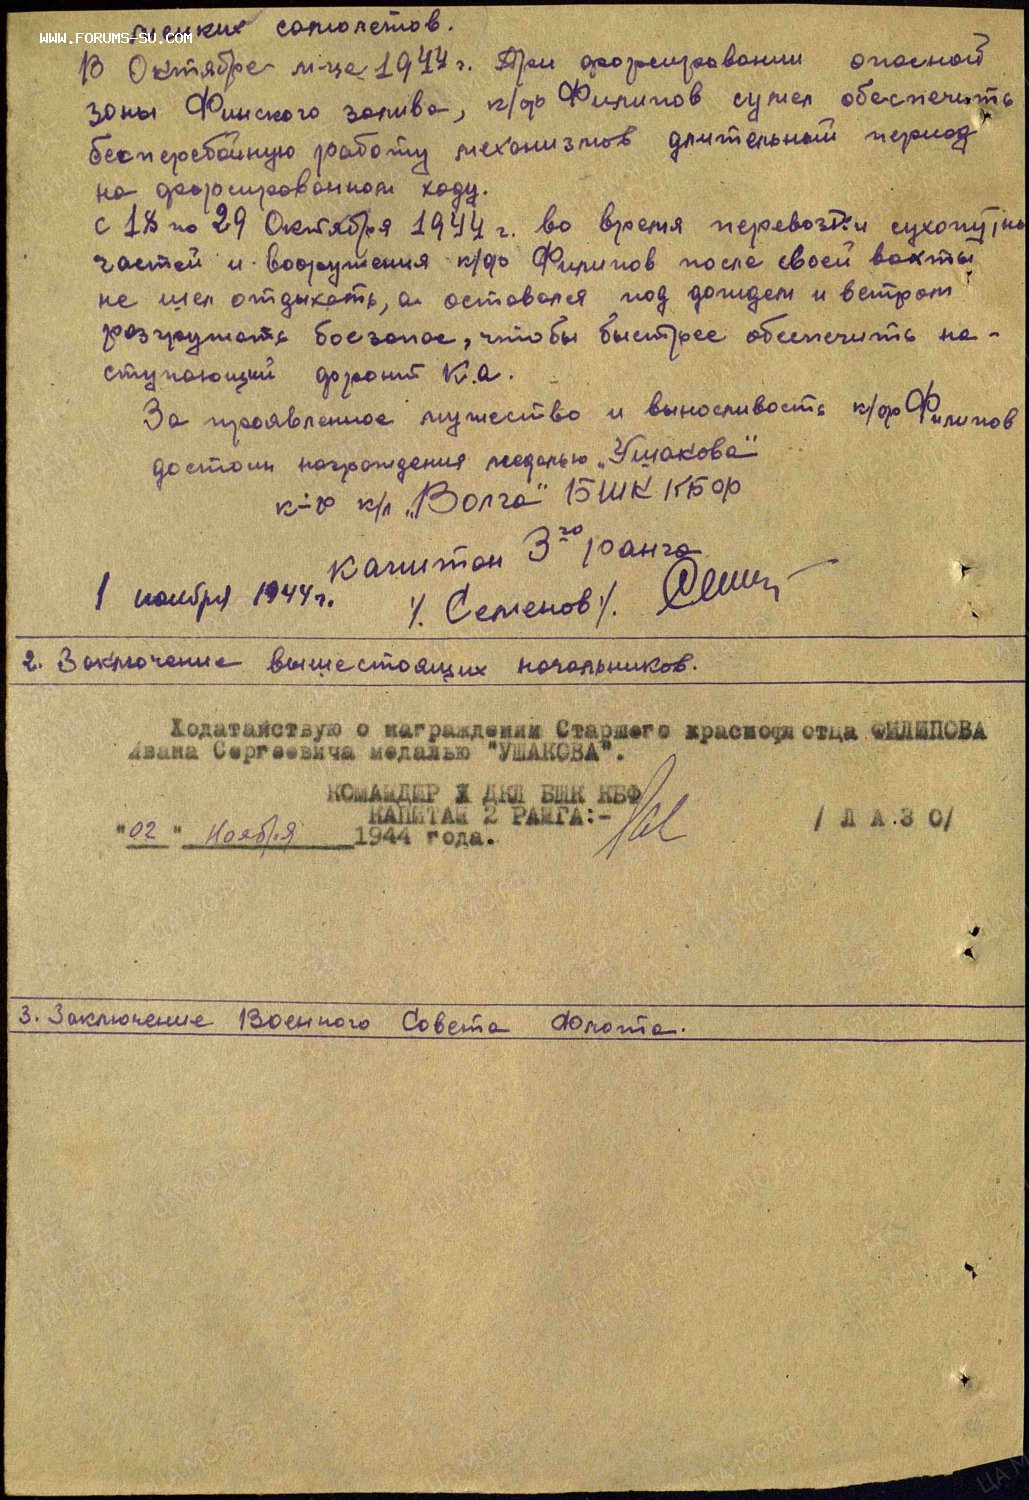 WWW.FORUMS-SU.COM
самолетов.
В Октябре м-це 1944 г. При форсировании опасной
зоны Финского залива, к/ф Филипов сумел обеспечить
бесперебойную работу механизмов длительный период
на форсированном ходу.
с 18 по 29 Октября 1944 г. во время перевозки сухопутн
частей и вооружения к/ф Филипов после своей вахты
не шел отдыхать, а оставался под дождем и ветром
разгружать боезапас, чтобы быстрее обеспечить на-
ступающий фронт К.А.
За проявленное мужество и выносливость к/ф Филипов
достоин награждения медалью „Ушакова"
к-р к/л „Волга" БШК КБФ
капитан 3го ранга
1 ноября 1944 г. /. Семенов /.
2. Заключение вышестоящих начальников.
Ходатайствую о награждении Старшего краснофлотца ФИЛИПОВА
Ивана Сергеевича медалью "УШАКОВА".
КОМАНДИР I ДКЛ БШК КБФ
КАПИТАН 2 РАНГА:- / Л А З О/
"02" Ноября 1944 года.
3. Заключение Военного Совета Флота.
ЦАМО.РФ